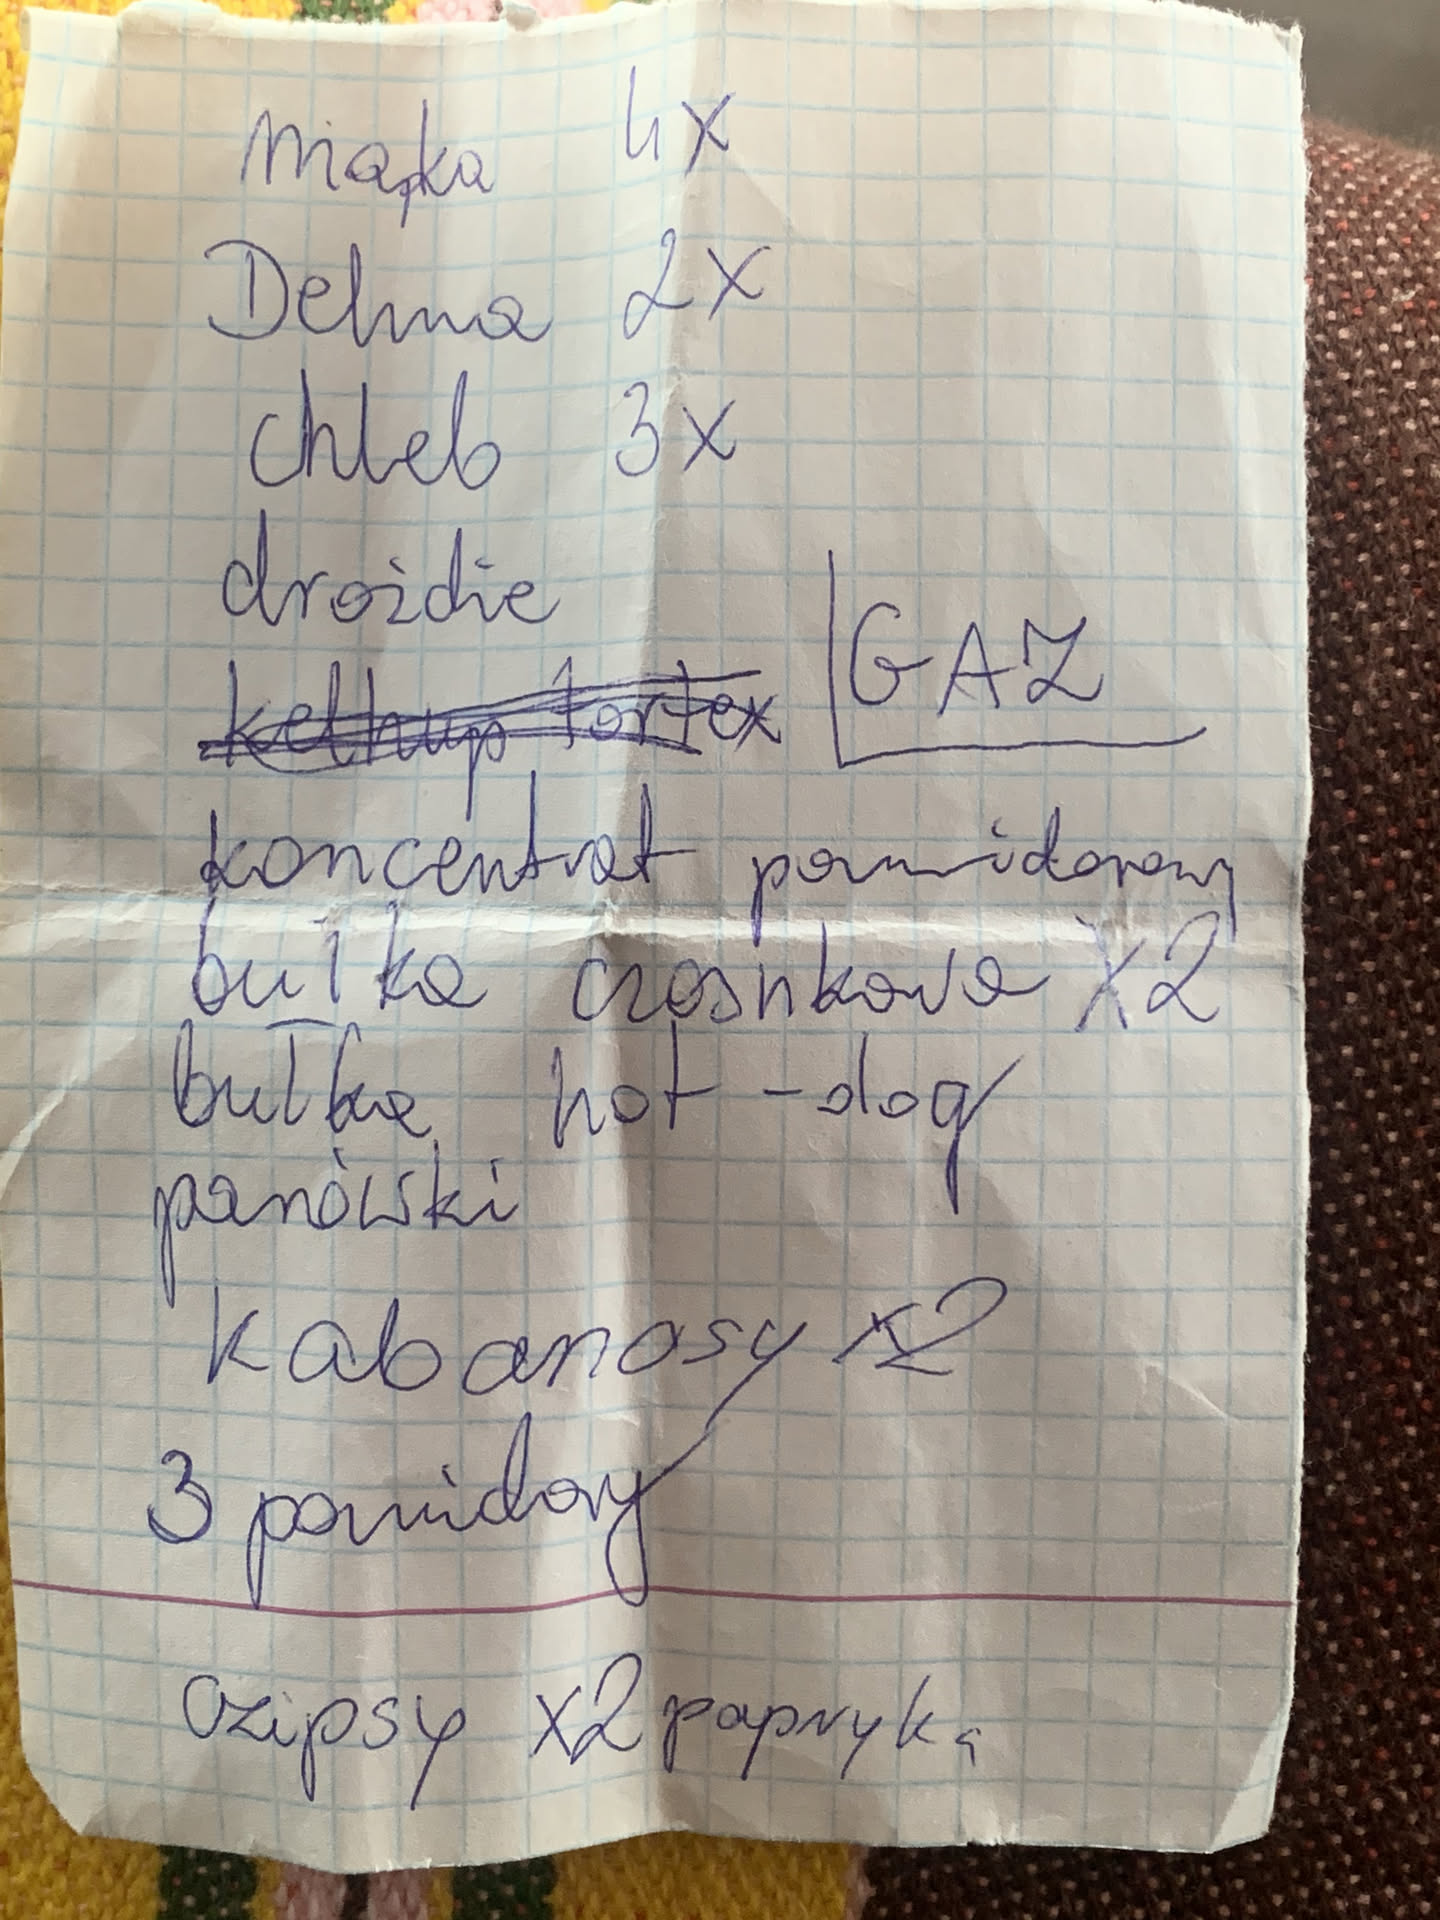 mąka 4x
Delma 2x
chleb 3x
drożdże
kethup tortex
GAZ
koncentrat pomidorowy
bułka czosnkowa x2
bułka hot-dog
parówski
kabanosy x2
3 pomidory
czipsy x2 papryka